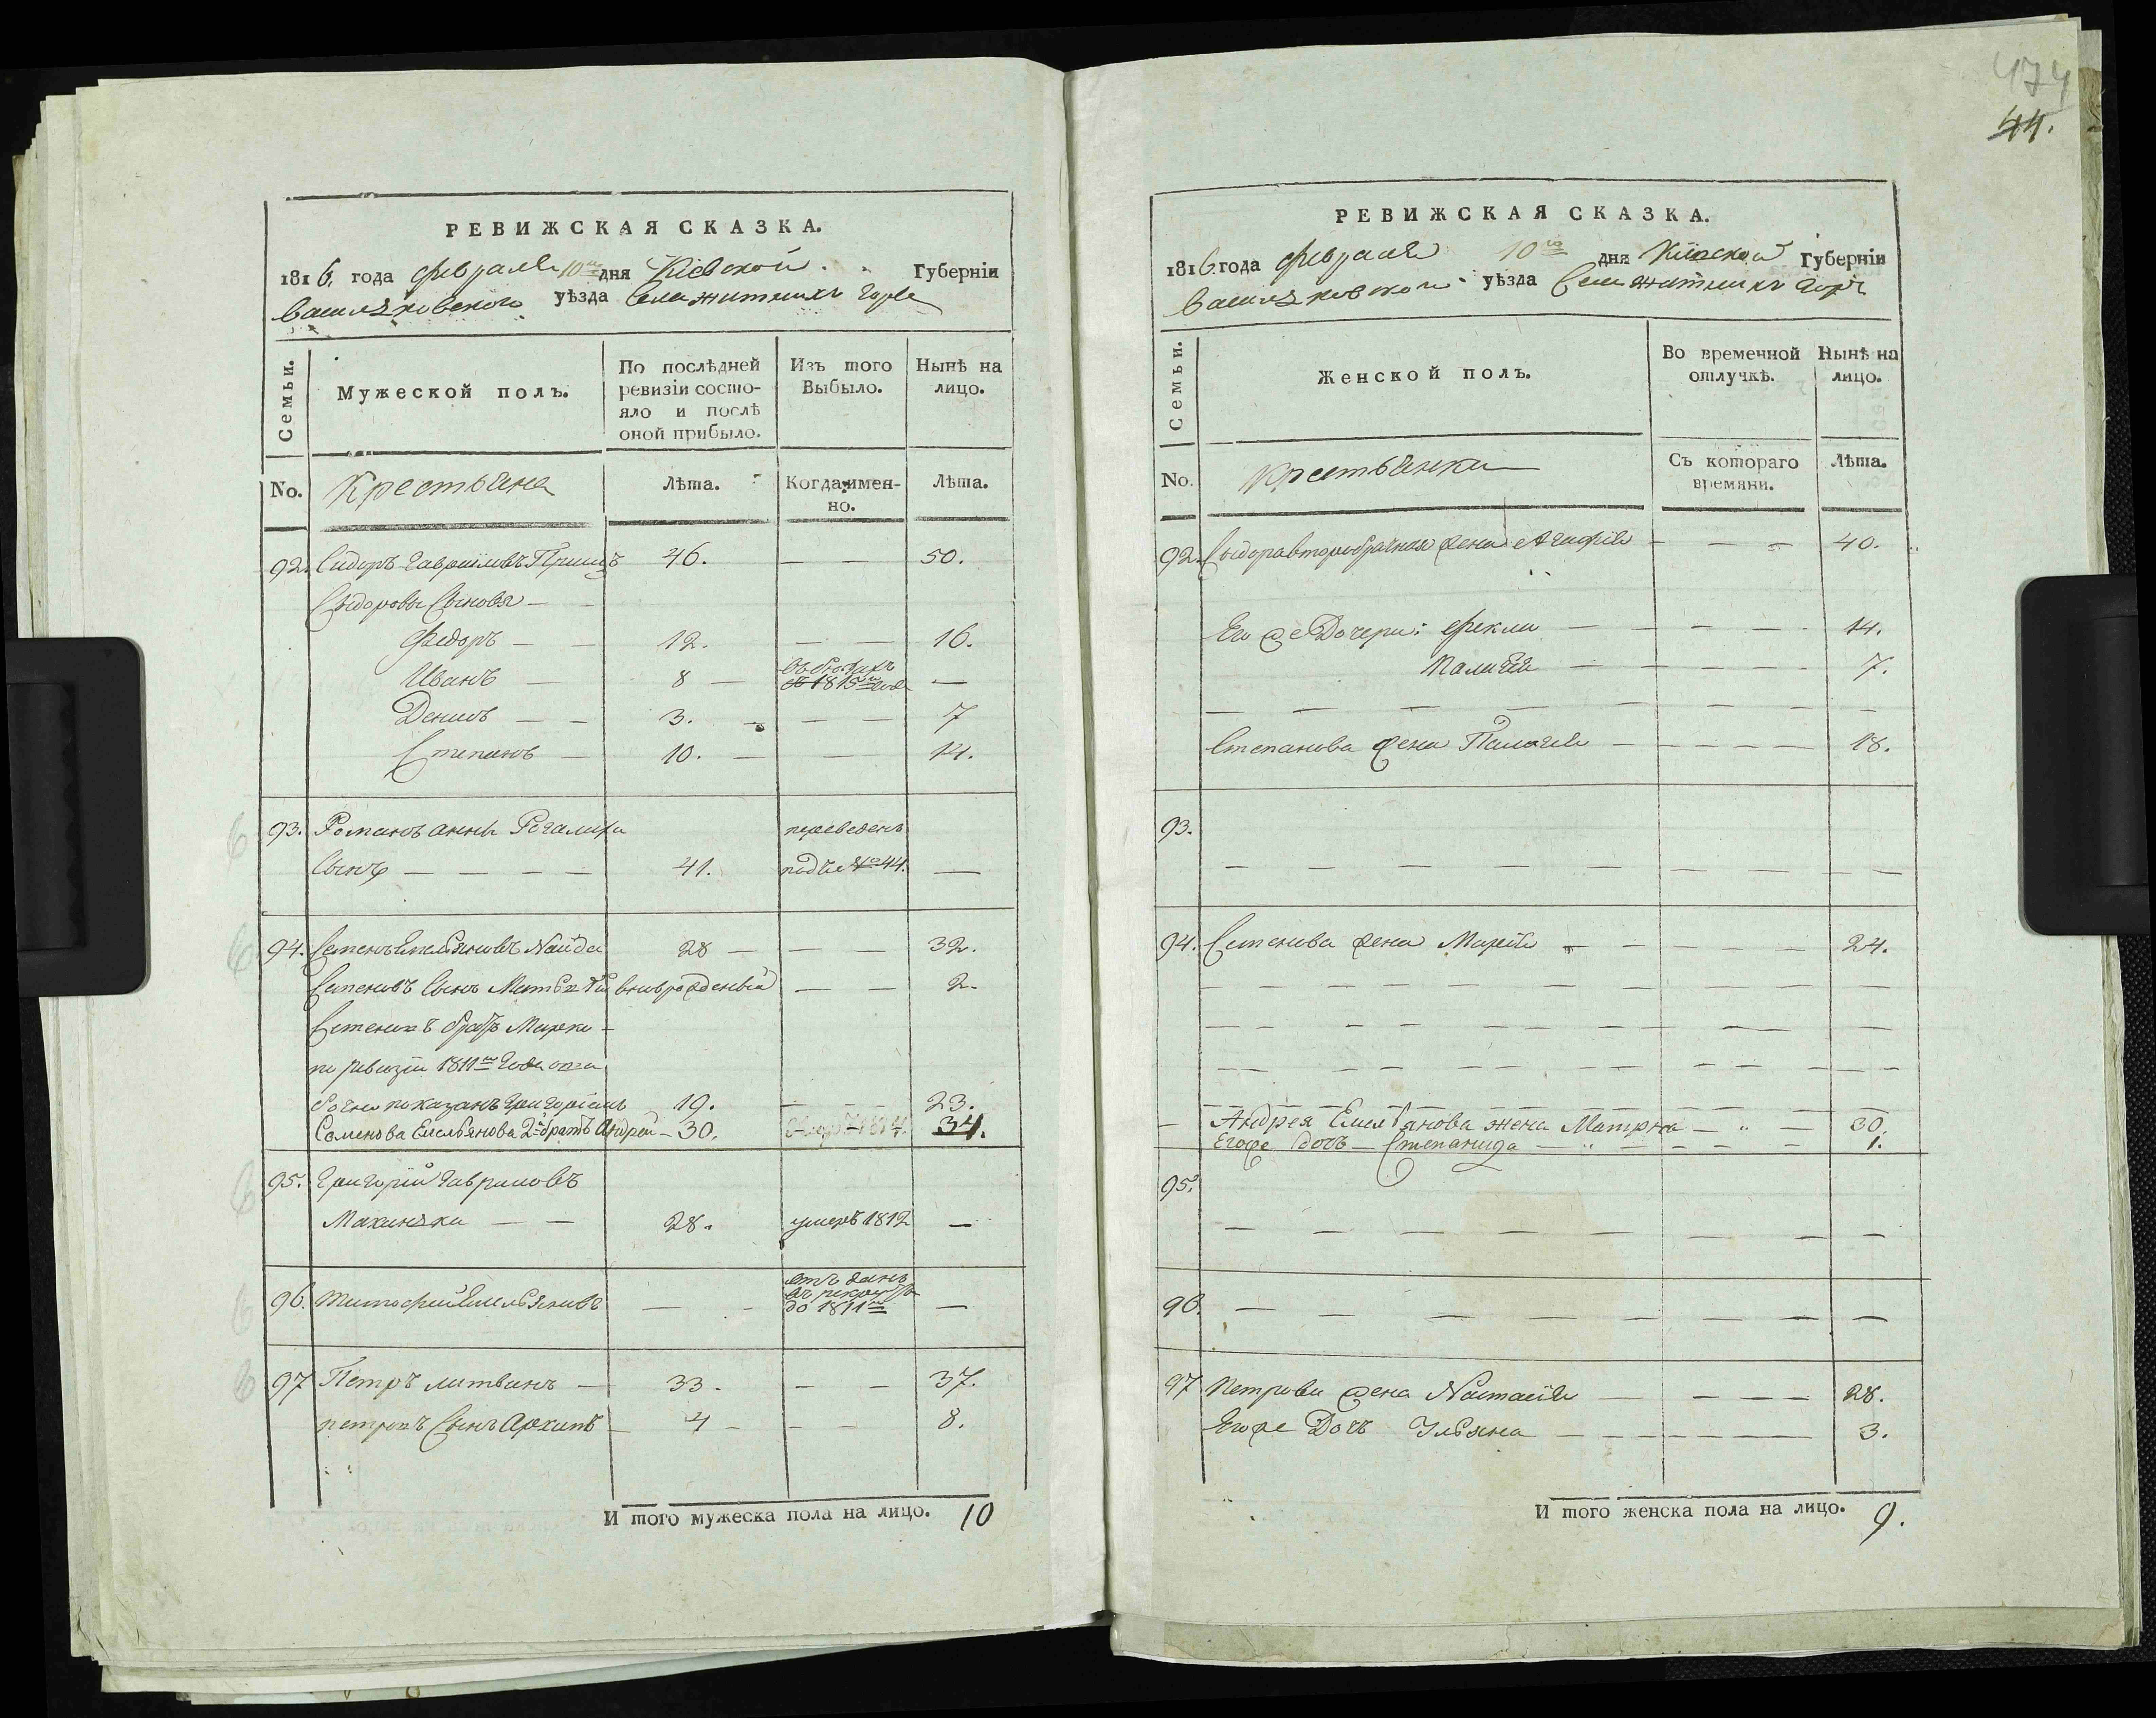 474
44.
РЕВИЖСКАЯ СКАЗКА.
1816. года февраля 10го дня Кіевской Губерніи
Васильковского уѣзда Села житнихъ горъ
Семьи.
Мужеской полъ.
По послѣдней ревизіи состо-
яло и послѣ
оной прибыло.
Изъ того
Выбыло.
Нынѣ на
лицо.
No.
Крестьяне
Лѣта.
Когда имен-
но.
Лѣта.
92. Сидоръ Гавриловъ 46. — — 50.
Сыдоровы Сыновя —
Федоръ — — 12. — — 16.
Иванъ — 8 — въ бегахъ
съ 1815го года —
Денисъ — — 3. — — — 7
Степанъ — 10. — — 14.
93. Романъ анны переведенъ
Сынъ — — — — 41. под № 44. —
94. Семенъ Емельяновъ Найда 28 — — — 32.
Семеновъ Сынъ Матвѣй вновърожденый — — 2.
Семеновъ братъ Марко —
по ревизіи 1811го года
показанъ Григоріемъ 19. — — 23.
Семенова Емельянова 2й братъ Андрей — 30. 34.
95. Григорій Гавриловъ
— — 28. умеръ 1812 —
96. Тимофей Емельяновъ — — отъданъ
въ рекруты
до 1811го —
97 Петръ литвинъ — 33. — — 37.
петровъ Сынъ Архипъ — 4 — — — 8.
И того мужеска пола на лицо. 10
РЕВИЖСКАЯ СКАЗКА.
1816. года февраля 10го дня Кіевской Губерніи
Васильковской уѣзда Села житнихъ горъ
Семьи.
Женской полъ.
Во временной
отлучкѣ.
Нынѣ на
лицо.
No.
крестьянки
Съ котораго
времяни.
Лѣта.
92. Сыдора второбрачная жена Агафія — — — 40.
Его же Дочери: фекла — — — — 14.
Палагія — — — — 7.
Степанова жена Палагія — — — — — 18.
93.
94. Семенова жена Марія — — — — — 24.
— Андрея Емельянова жена Матрна — „ — 30.
Егоже дочь — Степанида — „ — — — — 1.
95.
96.
97 Петрова жена Настасія — — — — 28.
Егоже Дочь Ульяна — — — — — — 3.
И того женска пола на лицо. 9.